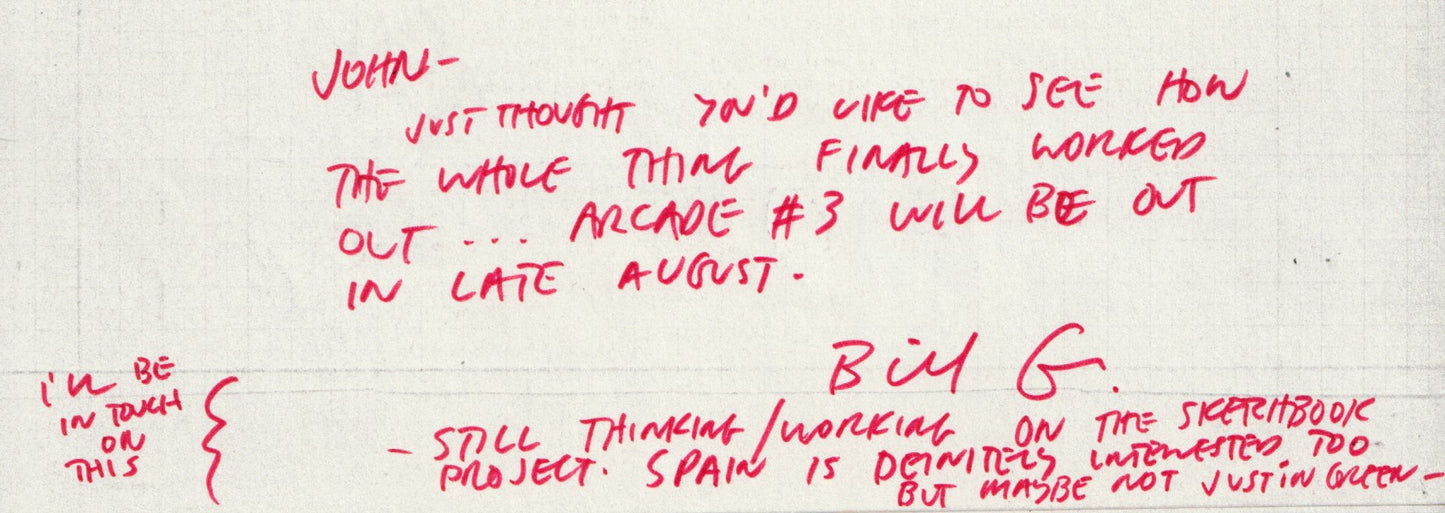 JOHN-
JUST THOUGHT YOU'D LIKE TO SEE HOW
THE WHOLE THING FINALLY WORKED
OUT ... ARCADE #3 WILL BE OUT
IN LATE AUGUST.
Bill G.
I'LL BE
IN TOUCH
ON
THIS
- STILL THINKING/WORKING ON THE SKETCHBOOK
PROJECT. SPAIN IS DEFINITELY INTERESTED TOO
BUT MAYBE NOT JUSTIN GREEN -